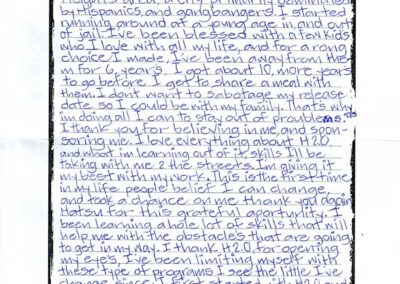 Heights area, a city primarily dominated
by Hispanics, and gangbangers. I started
running around at a young age in and out
of jail. I've been blessed with a few kids
who I love with all my life, and for a rong
choice I made, I've been away from the-
m for 6, years. I got about 10, more years
to go before I get to share a meal with
them. I dont want to sabotage my release
date so I could be with my family. That's why
im doing all I can to stay out of problems.
I thank you for believing in me, and spon-
soring me. I love everything about H2O,
and what im learning out of it, skills I'll be
taking with me 2 the streets. Im giving it
my best with my work. This is the first time
in my life people belief I can change,
and took a chance on me thank you again
Hatsu for this grateful aportunity. I
been learning a hole lot of skills that will
help me with the obstacles that are going
to get in my way. I thank H2O, for opening
my eyes, I've been limiting myself with
these type of programs I see the little I've
change since I first started with H2O and